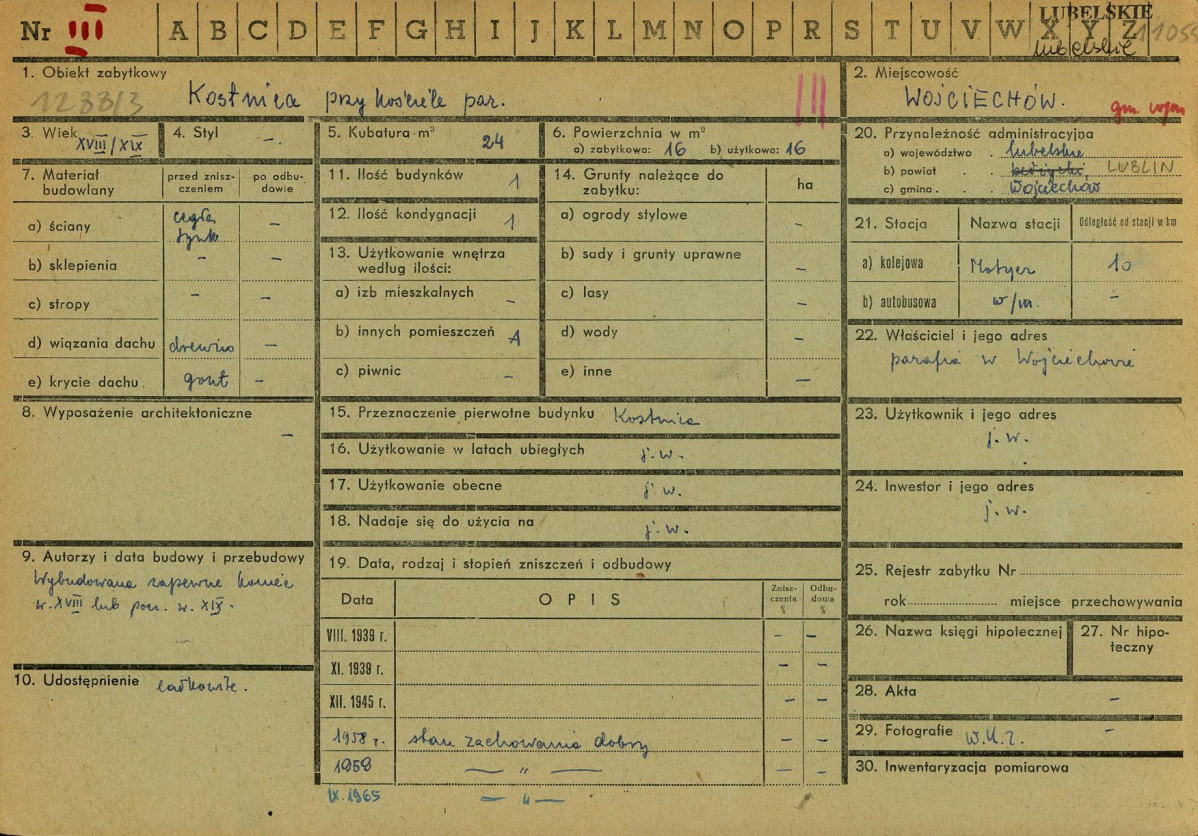 Nr III A B C D E F G H I J K L M N O P R S T U V W X Y Z
LUBELSKIE
lubelskie
11055
1. Obiekt zabytkowy
1233/3 Kostnica przy kościele par.
III
2. Miejscowość
WOJCIECHÓW.
gm. wojc
3. Wiek XVIII/XIX
4. Styl –.
5. Kubatura m³ 24
6. Powierzchnia w m²
a) zabytkowa: 16 b) użytkowa: 16
20. Przynależność administracyjna
a) województwo . lubelskie
b) powiat . . LUBLIN
c) gmina . . . Wojciechów
7. Materiał budowlany
przed znisz-
czeniem
po odbu-
dowie
a) ściany cegła tynk –
b) sklepienia – –
c) stropy – –
d) wiązania dachu drewno –
e) krycie dachu gont –
11. Ilość budynków 1
12. Ilość kondygnacji 1
13. Użytkowanie wnętrza
według ilości:
a) izb mieszkalnych –
b) innych pomieszczeń 1
c) piwnic –
14. Grunty należące do
zabytku: ha
a) ogrody stylowe –
b) sady i grunty uprawne –
c) lasy –
d) wody –
e) inne –
21. Stacja Nazwa stacji Odległość od stacji w km
a) kolejowa Motycz 10
b) autobusowa w/m. –
22. Właściciel i jego adres
parafia w Wojciechowie
8. Wyposażenie architektoniczne
–
15. Przeznaczenie pierwotne budynku Kostnica
16. Użytkowanie w latach ubiegłych j. w.
17. Użytkowanie obecne j. w.
18. Nadaje się do użycia na j. w.
23. Użytkownik i jego adres
j. w.
24. Inwestor i jego adres
j. w.
9. Autorzy i data budowy i przebudowy
Wybudowana zapewne koniec
w. XVIII lub pocz. w. XIX.
–
10. Udostępnienie całkowite.
19. Data, rodzaj i stopień zniszczeń i odbudowy
Data OPIS Znisz-
czenia
% Odbu-
dowa
%
VIII. 1939 r. – –
XI. 1939 r. – –
XII. 1945 r. – –
1958 r. stan zachowania dobry – –
1959 — " — – –
IX. 1965 — " —
25. Rejestr zabytku Nr
rok miejsce przechowywania
26. Nazwa księgi hipotecznej
27. Nr hipo-
teczny
28. Akta –
29. Fotografie W.K.Z. –
30. Inwentaryzacja pomiarowa